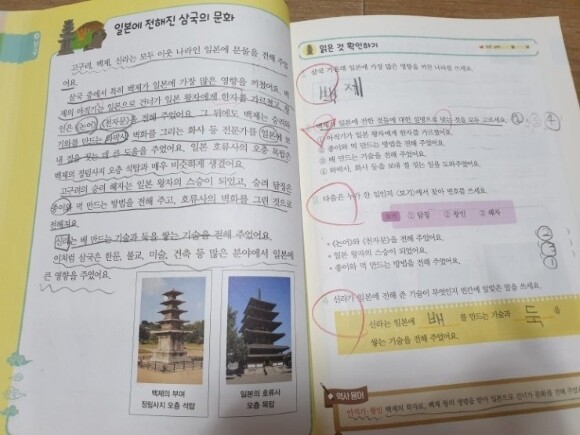 일본에 전해진 삼국의 문화
고구려, 백제, 신라는 모두 이웃 나라인 일본에 문물을 전해 주었
어요.
삼국 중에서 특히 백제가 일본에 가장 많은 영향을 끼쳤어요. 백
제의 아직기는 일본으로 건너가 일본 왕자에게 한자를 가르쳤고, 왕
인은 《논어》, 《천자문》을 전해 주었어요. 그 뒤에도 백제는 승려와
기와를 만드는 와박사, 벽화를 그리는 화사 등 전문가를 일본에 보
내 절을 짓는 데 큰 도움을 주었어요. 일본 호류사의 오층 목탑은
백제의 정림사지 오층 석탑과 매우 비슷하게 생겼어요.
고구려의 승려 혜자는 일본 왕자의 스승이 되었고, 승려 담징은
종이와 먹 만드는 방법을 전해 주고, 호류사의 벽화를 그린 것으로
전해져요.
신라는 배 만드는 기술과 둑을 쌓는 기술을 전해 주었어요.
이처럼 삼국은 한문, 불교, 미술, 건축 등 많은 분야에서 일본에
큰 영향을 주었어요.
백제의 부여
정림사지 오층 석탑
일본의 호류사
오층 목탑
읽은 것 확인하기
삼국 가운데 일본에 가장 많은 영향을 끼친 나라를 쓰세요.
백제
백제가 일본에 전한 것들에 대한 설명으로 맞는 것을 모두 고르세요.
① 아직기가 일본 왕자에게 한자를 가르쳤어요.
② 종이와 먹 만드는 방법을 전해 주었어요.
③ 배 만드는 기술을 전해 주었어요.
④ 와박사, 화사 등을 보내 절 짓는 일을 도와주었어요.
다음은 누가 한 일인지 〈보기〉에서 찾아 번호를 쓰세요.
보기 ① 담징 ② 왕인 ③ 혜자
• 《논어》와 《천자문》을 전해 주었어요.
• 일본 왕자의 스승이 되었어요.
• 종이와 먹 만드는 방법을 전해 주었어요.
신라가 일본에 전해 준 기술이 무엇인지 빈칸에 알맞은 말을 쓰세요.
신라는 일본에 배 를 만드는 기술과 둑 을
쌓는 기술을 전해 주었어요.
역사 용어